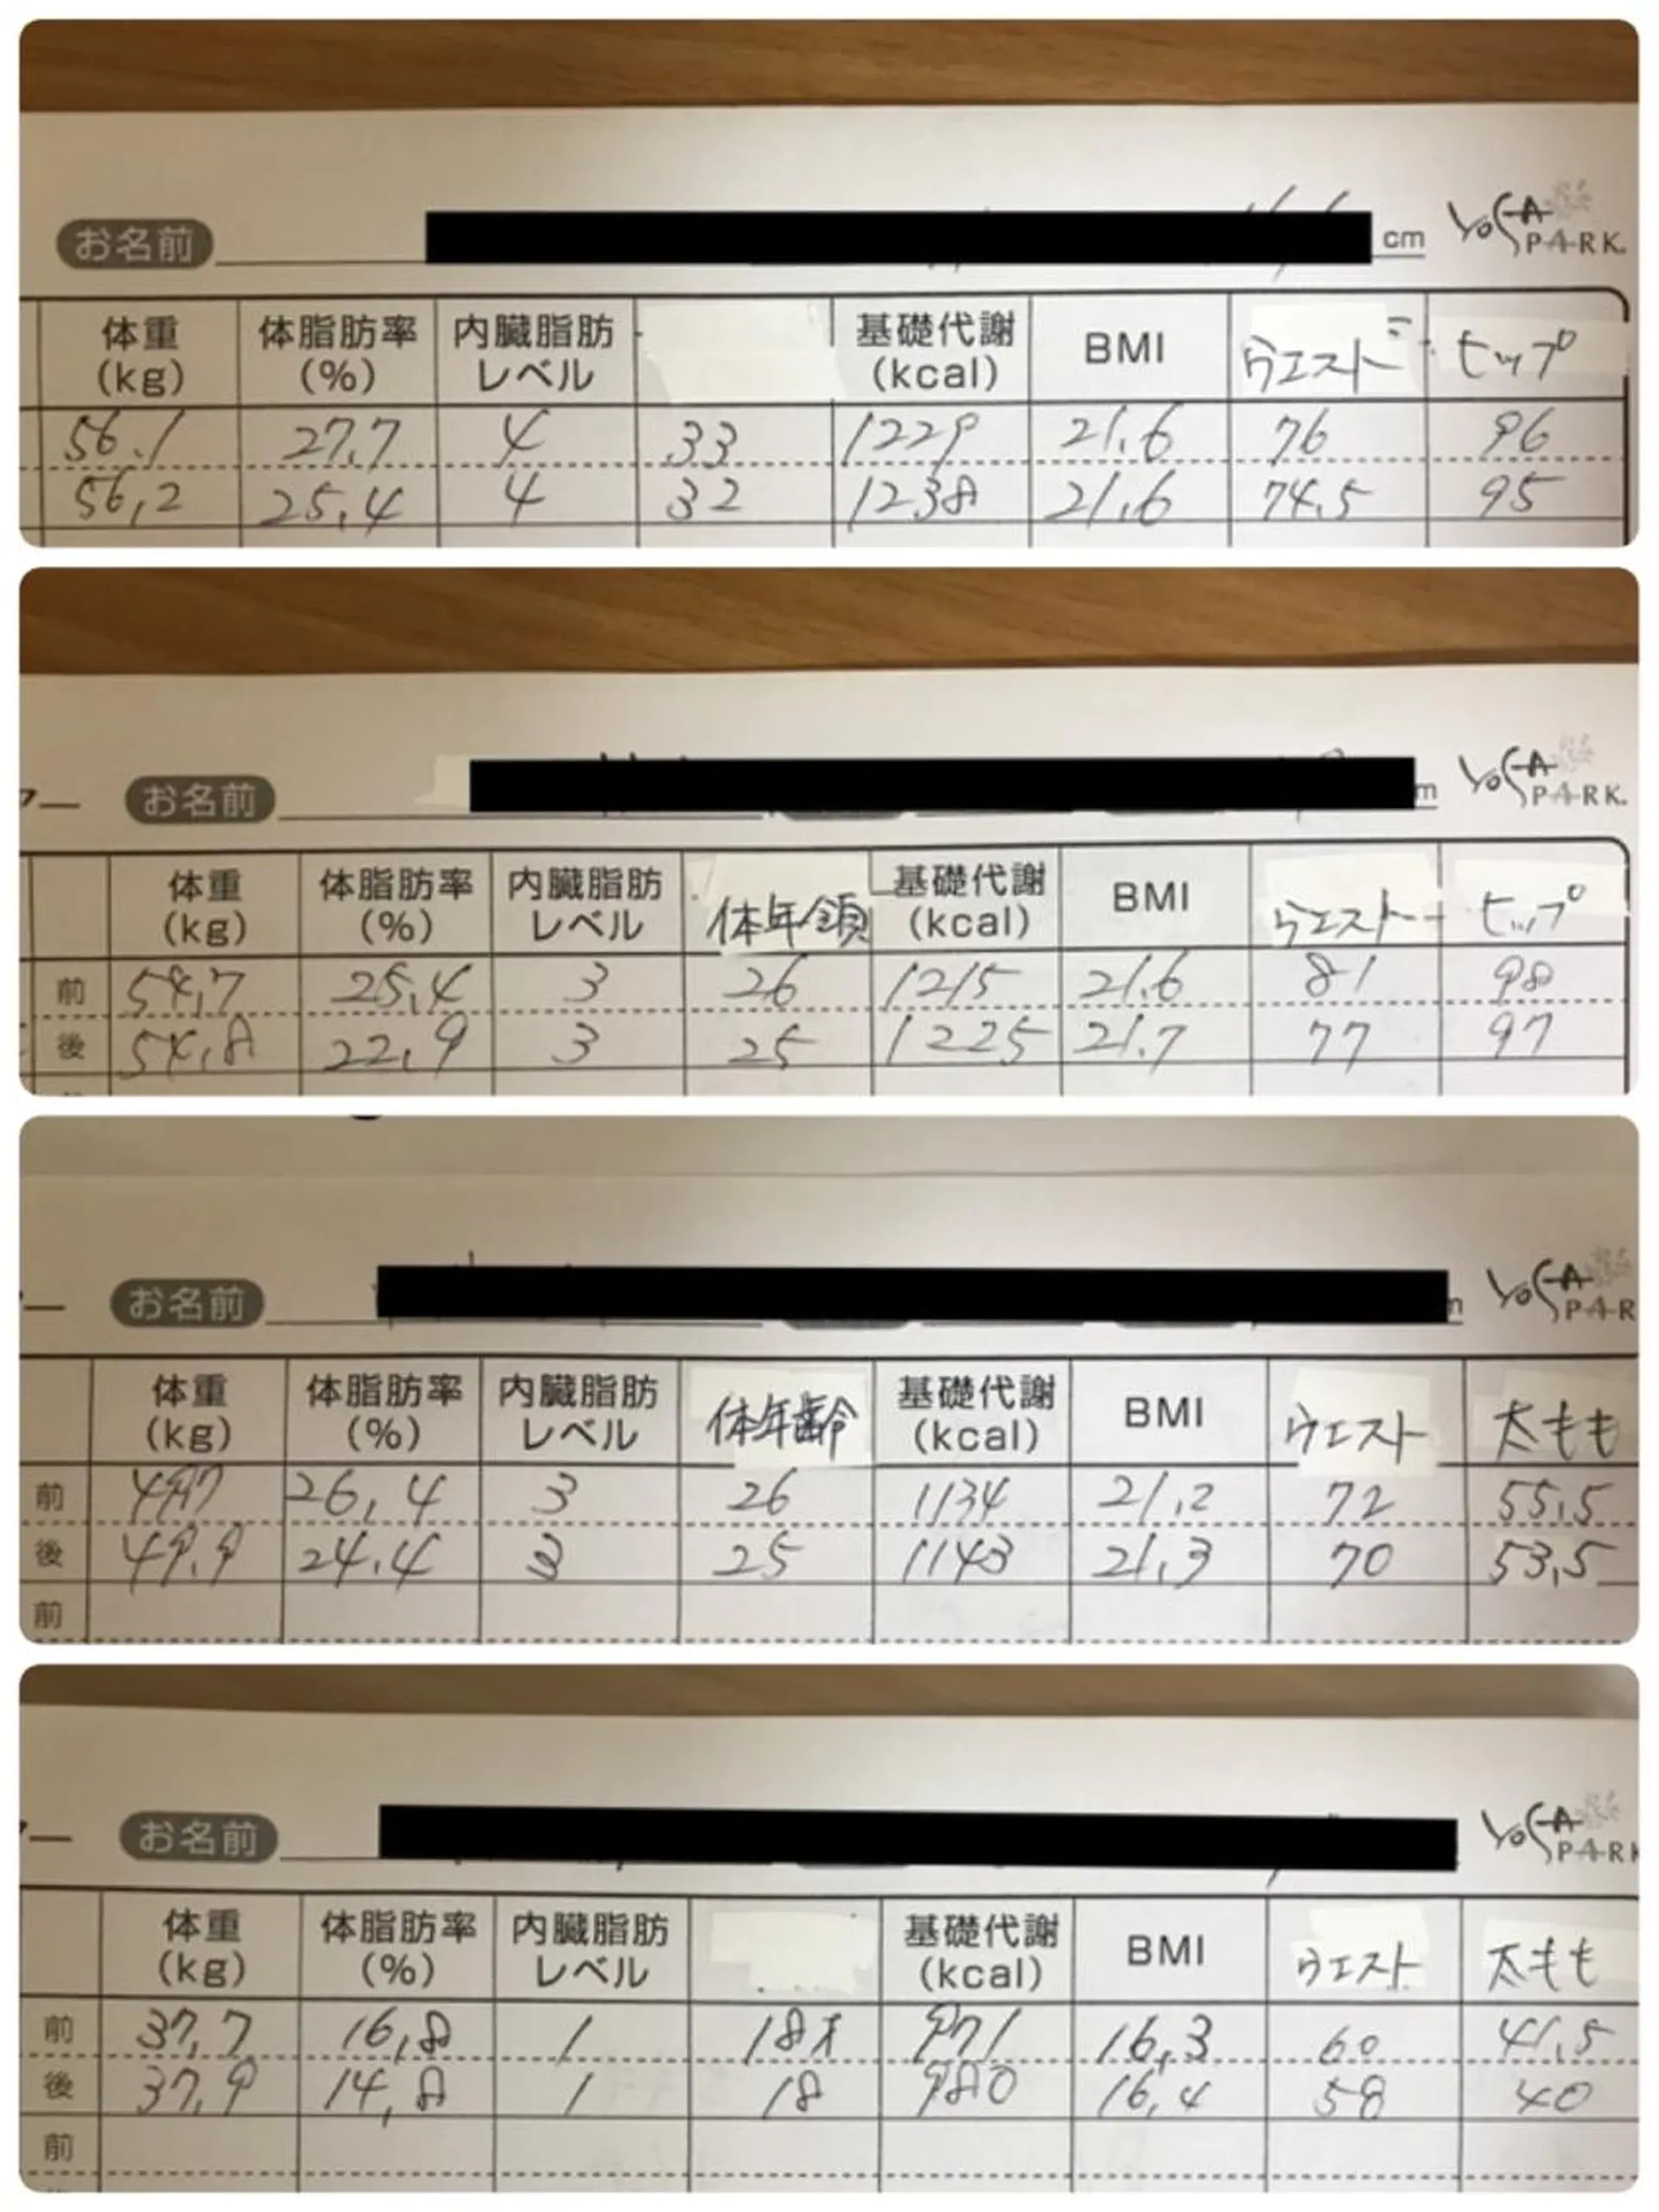 お名前 cm YOSA PARK.
体重(kg) 体脂肪率(%) 内臓脂肪レベル 基礎代謝(kcal) BMI ウエスト ヒップ
56.1 27.7 4 33 1229 21.6 76 96
56.2 25.4 4 32 1238 21.6 74.5 95
お名前 m YOSA PARK.
体重(kg) 体脂肪率(%) 内臓脂肪レベル 体年領 基礎代謝(kcal) BMI ウエスト ヒップ
前 54.7 25.4 3 26 1215 21.6 81 98
後 54.8 22.9 3 25 1225 21.7 77 97
お名前 YOSA PAR
体重(kg) 体脂肪率(%) 内臓脂肪レベル 体年齢 基礎代謝(kcal) BMI ウエスト 太もも
前 26.4 3 26 1134 21.2 72 55.5
後 49.9 24.4 3 25 1143 21.3 70 53.5
前
お名前 YOSA PARK
体重(kg) 体脂肪率(%) 内臓脂肪レベル 基礎代謝(kcal) BMI ウエスト 太もも
前 37.7 16.8 1 18才 971 16.3 60 41.5
後 37.9 14.8 1 18 980 16.4 58 40
前